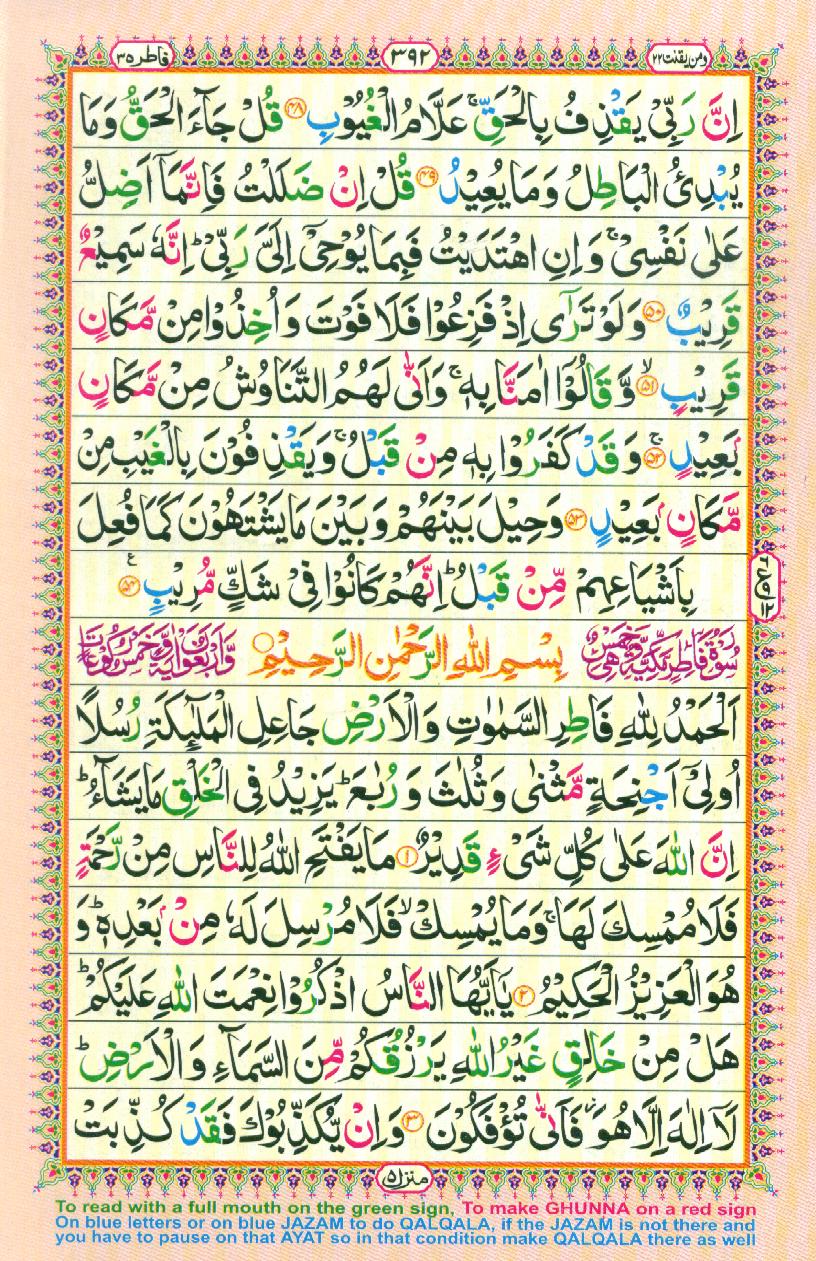 ومن یقنت ۲۲
۳۹۲
فاطر ۳۵
اِنَّ رَبِّیْ یَقْذِفُ بِالْحَقِّ ۚ عَلَّامُ الْغُیُوْبِ ﴿۴۸﴾ قُلْ جَآءَ الْحَقُّ وَمَا
یُبْدِئُ الْبَاطِلُ وَمَا یُعِیْدُ ﴿۴۹﴾ قُلْ اِنْ ضَلَلْتُ فَاِنَّمَاۤ اَضِلُّ
عَلٰی نَفْسِیْ ۚ وَاِنِ اهْتَدَیْتُ فَبِمَا یُوْحِیْۤ اِلَیَّ رَبِّیْ ؕ اِنَّهٗ سَمِیْعٌ
قَرِیْبٌ ﴿۵۰﴾ وَلَوْ تَرٰۤی اِذْ فَزِعُوْا فَلَا فَوْتَ وَاُخِذُوْا مِنْ مَّكَانٍ
قَرِیْبٍ ۙ﴿۵۱﴾ وَّقَالُوْۤا اٰمَنَّا بِهٖ ۚ وَاَنّٰی لَهُمُ التَّنَاوُشُ مِنْ مَّكَانٍۭ
بَعِیْدٍ ۚ﴿۵۲﴾ وَقَدْ كَفَرُوْا بِهٖ مِنْ قَبْلُ ۚ وَیَقْذِفُوْنَ بِالْغَیْبِ مِنْ
مَّكَانٍۭ بَعِیْدٍ ﴿۵۳﴾ وَحِیْلَ بَیْنَهُمْ وَبَیْنَ مَا یَشْتَهُوْنَ كَمَا فُعِلَ
بِاَشْیَاعِهِمْ مِّنْ قَبْلُ ؕ اِنَّهُمْ كَانُوْا فِیْ شَكٍّ مُّرِیْبٍ ﴿۵۴﴾ ع
سُوْرَةُ فَاطِرٍ مَكِّیَّةٌ وَّهِیَ خَمْسٌ بِسْمِ اللهِ الرَّحْمٰنِ الرَّحِیْمِ ○ وَّاَرْبَعُوْنَ اٰیَةً وَّخَمْسُ رُكُوْعَاتٍ
اَلْحَمْدُ لِلّٰهِ فَاطِرِ السَّمٰوٰتِ وَالْاَرْضِ جَاعِلِ الْمَلٰٓىِٕكَةِ رُسُلًا
اُولِیْۤ اَجْنِحَةٍ مَّثْنٰی وَثُلٰثَ وَرُبٰعَ ؕ یَزِیْدُ فِی الْخَلْقِ مَا یَشَآءُ ؕ
اِنَّ اللهَ عَلٰی كُلِّ شَیْءٍ قَدِیْرٌ ﴿۱﴾ مَا یَفْتَحِ اللهُ لِلنَّاسِ مِنْ رَّحْمَةٍ
فَلَا مُمْسِكَ لَهَا ۚ وَمَا یُمْسِكْ ۙ فَلَا مُرْسِلَ لَهٗ مِنْۢ بَعْدِهٖ ؕ وَ
هُوَ الْعَزِیْزُ الْحَكِیْمُ ﴿۲﴾ یٰۤاَیُّهَا النَّاسُ اذْكُرُوْا نِعْمَتَ اللهِ عَلَیْكُمْ ؕ
هَلْ مِنْ خَالِقٍ غَیْرُ اللهِ یَرْزُقُكُمْ مِّنَ السَّمَآءِ وَالْاَرْضِ ؕ
لَاۤ اِلٰهَ اِلَّا هُوَ ۖ فَاَنّٰی تُؤْفَكُوْنَ ﴿۳﴾ وَاِنْ یُّكَذِّبُوْكَ فَقَدْ كُذِّبَتْ
منزل ۵
To read with a full mouth on the green sign, To make GHUNNA on a red sign
On blue letters or on blue JAZAM to do QALQALA, if the JAZAM is not there and
you have to pause on that AYAT so in that condition make QALQALA there as well